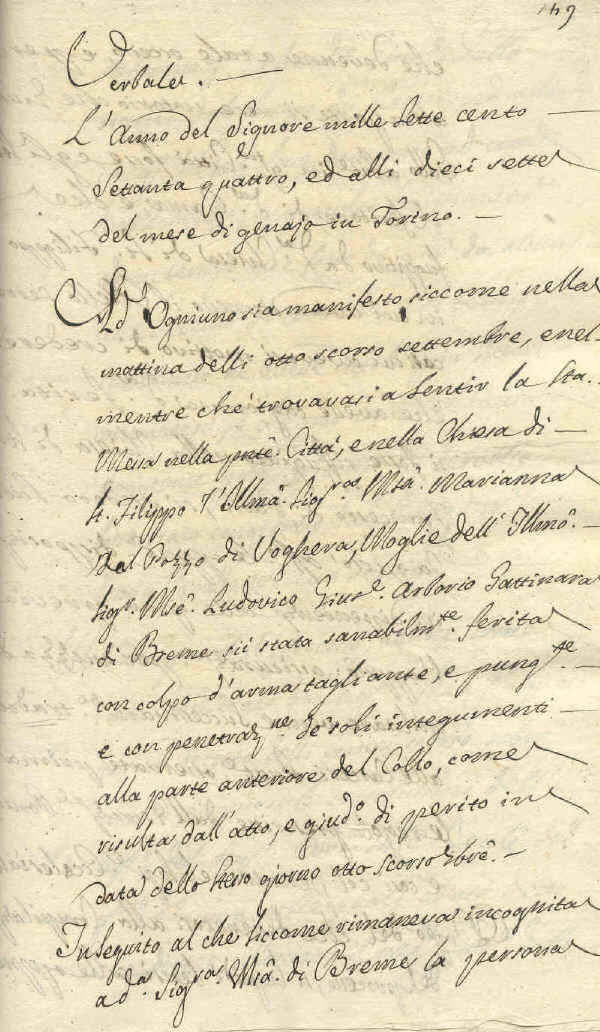 149
Verbale. —
L'Anno del Signore mille sette cento —
Settanta quattro, ed alli dieci sette
del mese di genajo in Torino. —
Ad Ogniuno sia manifesto siccome nella
mattina delli otto scorso settembre, e nel
mentre che trovavasi a sentir la Sta.
Messa nella pnte. Città, e nella Chiesa di —
S. Filippo l'Illma. Sigra. Msa. Marianna
Dal Pozzo di Voghera, Moglie dell' Illmo. —
Sigr. Mse. Ludovico Giuse. Arborio Gattinara
di Breme sii stata sanabilmte. ferita
con colpo d'arma tagliante, e pungte. —
e con penetrazne. de' soli integumenti —
alla parte anteriore del Collo, come
risulta dall'atto, e giudo. di perito in
data dello stesso giorno otto scorso 7bre. —
In seguito al che siccome rimaneva incognita
a da. Sigra. Msa. di Breme la persona